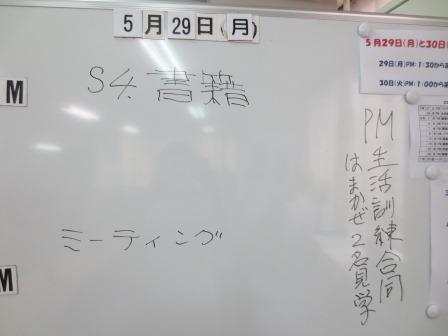 5月29日(月)
M
S4.書籍
ミーティング
M
PM生活訓練合同
はまかぜ2名見学
5月29日(月)と30日
29日(月)PM:1:30から
30日(火)PM:1:00から